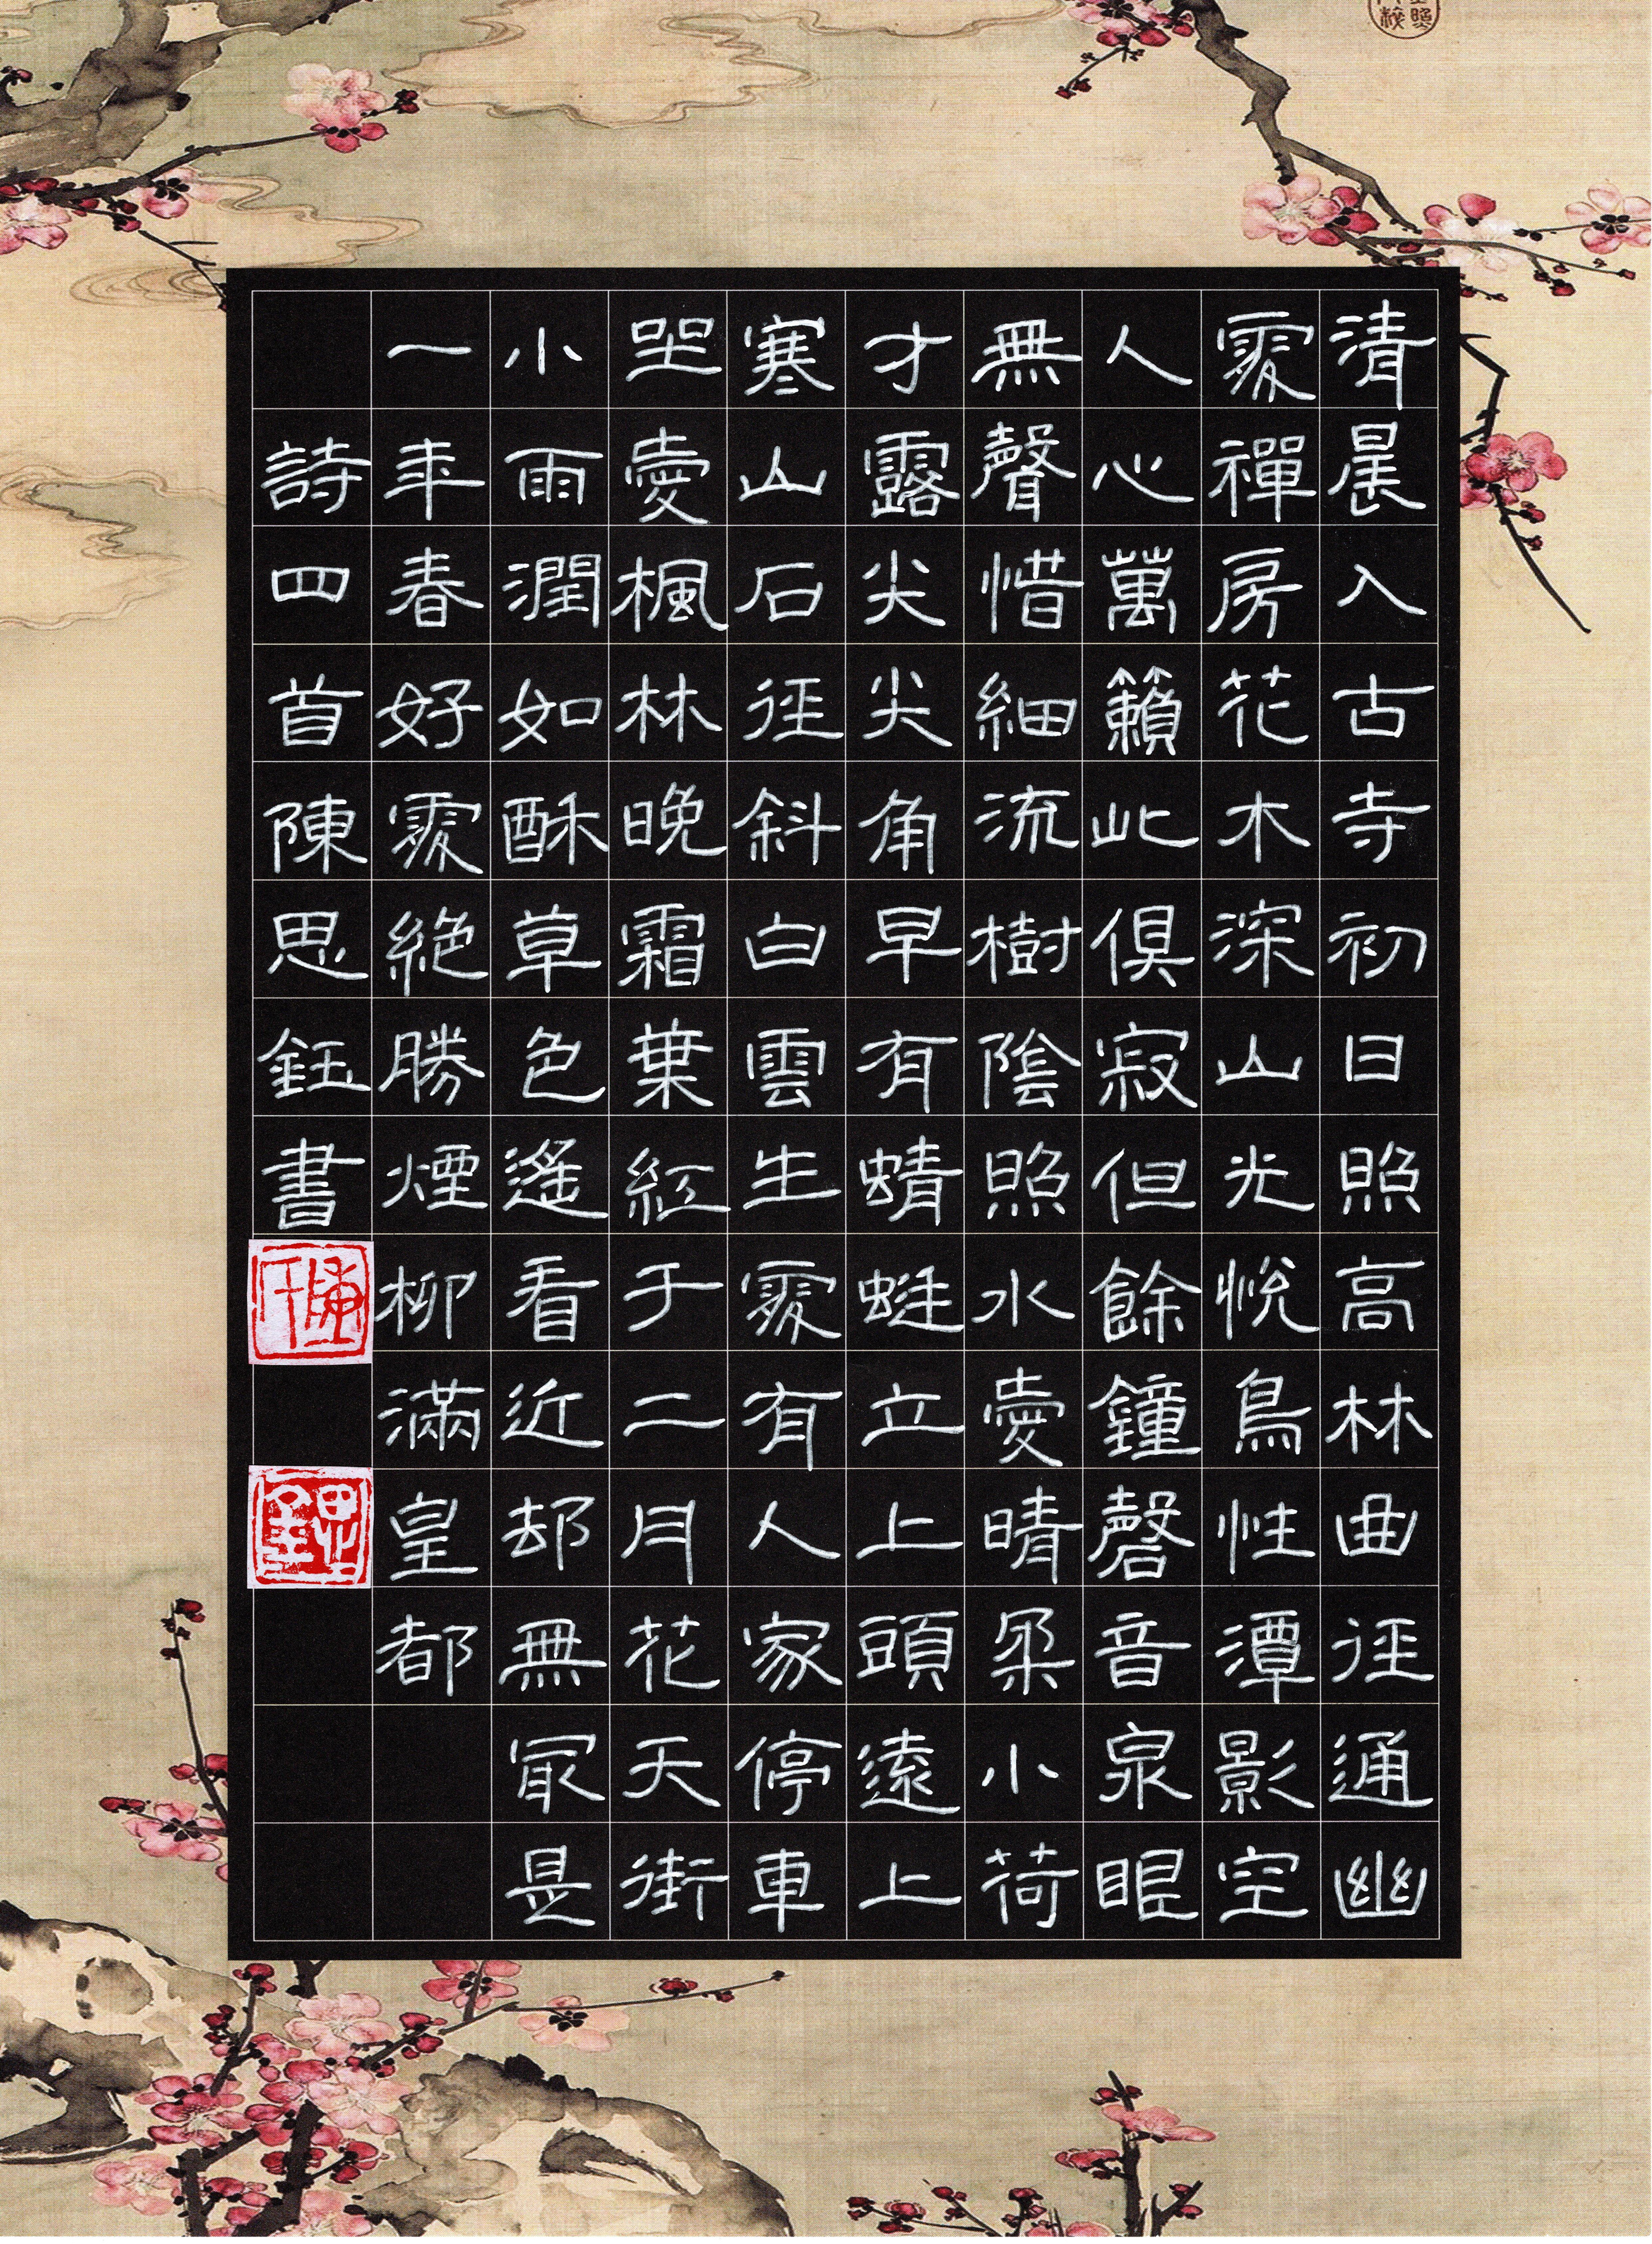 清晨入古寺初日照高林曲徑通幽
處禪房花木深山光悅鳥性潭影空
人心萬籟此俱寂但餘鐘磬音泉眼
無聲惜細流樹陰照水愛晴柔小荷
才露尖尖角早有蜻蜓立上頭遠上
寒山石徑斜白雲生處有人家停車
坐愛楓林晚霜葉紅于二月花天街
小雨潤如酥草色遙看近却無最是
一年春好處絕勝煙柳滿皇都
詩四首陳思鈺書